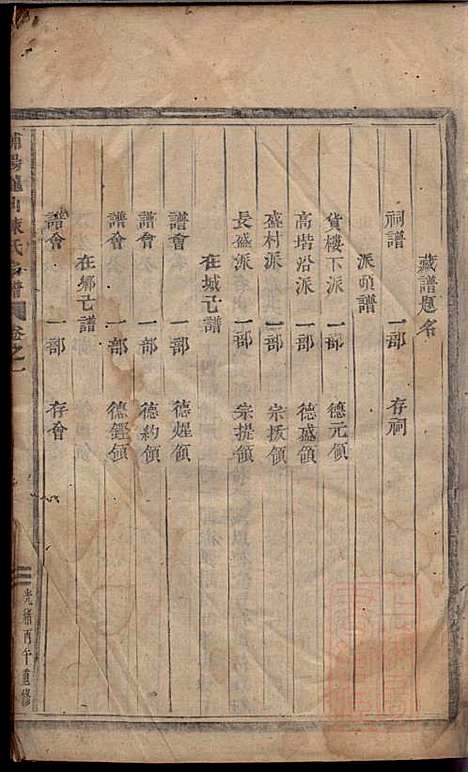 藏譜題名
祠譜 一部 存祠
派頭譜
貨樓下派 一部 德元領
高塔沿派 一部 德盛領
盛村派 一部 宗扳領
長盛派 一部 宗提領
在城亡譜
譜會 一部 德煋領
譜會 一部 德約領
譜會 一部 德鏗領
在鄉亡譜
譜會 一部 存會
浦陽龍山陳氏宗譜 卷之一
光緒丙午重修